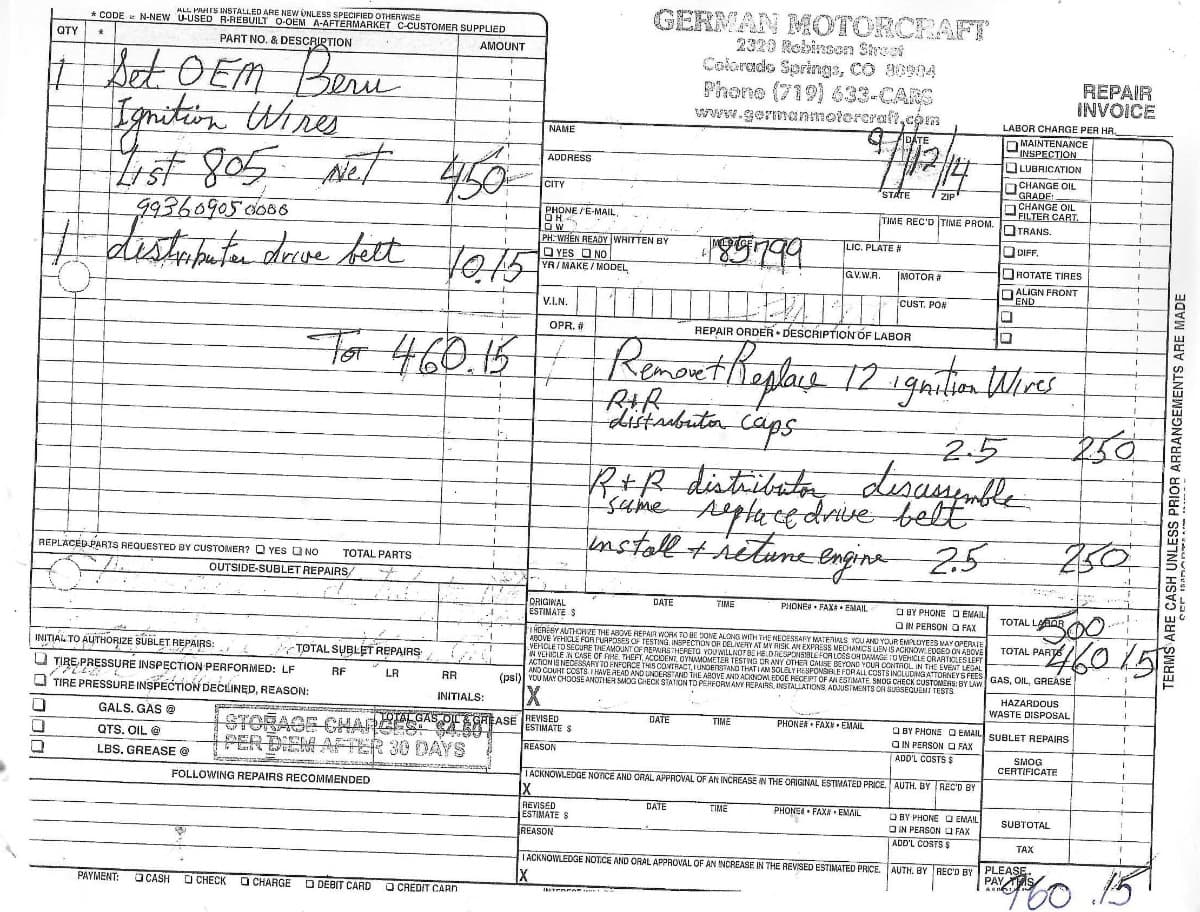 ALL PARTS INSTALLED ARE NEW UNLESS SPECIFIED OTHERWISE
* CODE = N-NEW U-USED R-REBUILT O-OEM A-AFTERMARKET C-CUSTOMER SUPPLIED
QTY * PART NO. & DESCRIPTION AMOUNT
1 Set OEM Beru
Ignition Wires
List 805 Net 450-
99360905
1 distributor drive belt 10.15
Tot 460.15
REPLACED PARTS REQUESTED BY CUSTOMER? YES NO TOTAL PARTS
OUTSIDE-SUBLET REPAIRS
INITIAL TO AUTHORIZE SUBLET REPAIRS: TOTAL SUBLET REPAIRS
TIRE PRESSURE INSPECTION PERFORMED: LF RF LR RR (psi)
TIRE PRESSURE INSPECTION DECLINED, REASON: INITIALS:
GALS. GAS @
QTS. OIL @
LBS. GREASE @
TOTAL GAS, OIL & GREASE
STORAGE CHARGES: $4.50
PER DIEM AFTER 30 DAYS
FOLLOWING REPAIRS RECOMMENDED
PAYMENT: CASH CHECK CHARGE DEBIT CARD CREDIT CARD
GERMAN MOTORCRAFT
2320 Robinson Street
Colorado Springs, CO 80904
Phone (719) 633-CARS
www.germanmotorcraft.com
REPAIR
INVOICE
NAME DATE
9/12/14
ADDRESS
CITY STATE ZIP
PHONE / E-MAIL
H
W
TIME REC'D TIME PROM.
PH. WHEN READY WRITTEN BY MILEAGE LIC. PLATE #
YES NO 85799
YR / MAKE / MODEL G.V.W.R. MOTOR #
V.I.N. CUST. PO#
OPR. # REPAIR ORDER • DESCRIPTION OF LABOR
LABOR CHARGE PER HR.
MAINTENANCE
INSPECTION
LUBRICATION
CHANGE OIL
GRADE:
CHANGE OIL
FILTER CART.
TRANS.
DIFF.
ROTATE TIRES
ALIGN FRONT
END
Remove + Replace 12 ignition Wires
R+R
distributor caps
2.5 250
R + R distributor disassemble
same replace drive belt
install + retune engine 2.5 250
ORIGINAL
ESTIMATE $ DATE TIME PHONE# • FAX# • EMAIL BY PHONE EMAIL
IN PERSON FAX
I HEREBY AUTHORIZE THE ABOVE REPAIR WORK TO BE DONE ALONG WITH THE NECESSARY MATERIALS. YOU AND YOUR EMPLOYEES MAY OPERATE
ABOVE VEHICLE FOR PURPOSES OF TESTING, INSPECTION OR DELIVERY AT MY RISK. AN EXPRESS MECHANICS LIEN IS ACKNOWLEDGED ON ABOVE
VEHICLE TO SECURE THE AMOUNT OF REPAIRS THERETO. YOU WILL NOT BE HELD RESPONSIBLE FOR LOSS OR DAMAGE TO VEHICLE OR ARTICLES LEFT
IN VEHICLE IN CASE OF FIRE, THEFT, ACCIDENT, DYNAMOMETER TESTING OR ANY OTHER CAUSE BEYOND YOUR CONTROL. IN THE EVENT LEGAL
ACTION IS NECESSARY TO ENFORCE THIS CONTRACT, I UNDERSTAND THAT I AM SOLELY RESPONSIBLE FOR ALL COSTS INCLUDING ATTORNEY'S FEES
AND COURT COSTS. I HAVE READ AND UNDERSTAND THE ABOVE AND ACKNOWLEDGE RECEIPT OF AN ESTIMATE. SMOG CHECK CUSTOMERS: BY LAW
YOU MAY CHOOSE ANOTHER SMOG CHECK STATION TO PERFORM ANY REPAIRS, INSTALLATIONS, ADJUSTMENTS OR SUBSEQUENT TESTS.
X
REVISED
ESTIMATE $ DATE TIME PHONE# • FAX# • EMAIL BY PHONE EMAIL
IN PERSON FAX
REASON ADD'L COSTS $
I ACKNOWLEDGE NOTICE AND ORAL APPROVAL OF AN INCREASE IN THE ORIGINAL ESTIMATED PRICE. AUTH. BY REC'D BY
X
REVISED
ESTIMATE $ DATE TIME PHONE# • FAX# • EMAIL BY PHONE EMAIL
IN PERSON FAX
REASON ADD'L COSTS $
I ACKNOWLEDGE NOTICE AND ORAL APPROVAL OF AN INCREASE IN THE REVISED ESTIMATED PRICE. AUTH. BY REC'D BY
X
TOTAL LABOR 500
TOTAL PARTS 460 15
GAS, OIL, GREASE
HAZARDOUS
WASTE DISPOSAL
SUBLET REPAIRS
SMOG
CERTIFICATE
SUBTOTAL
TAX
PLEASE
PAY THIS
960.15
TERMS ARE CASH UNLESS PRIOR ARRANGEMENTS ARE MADE